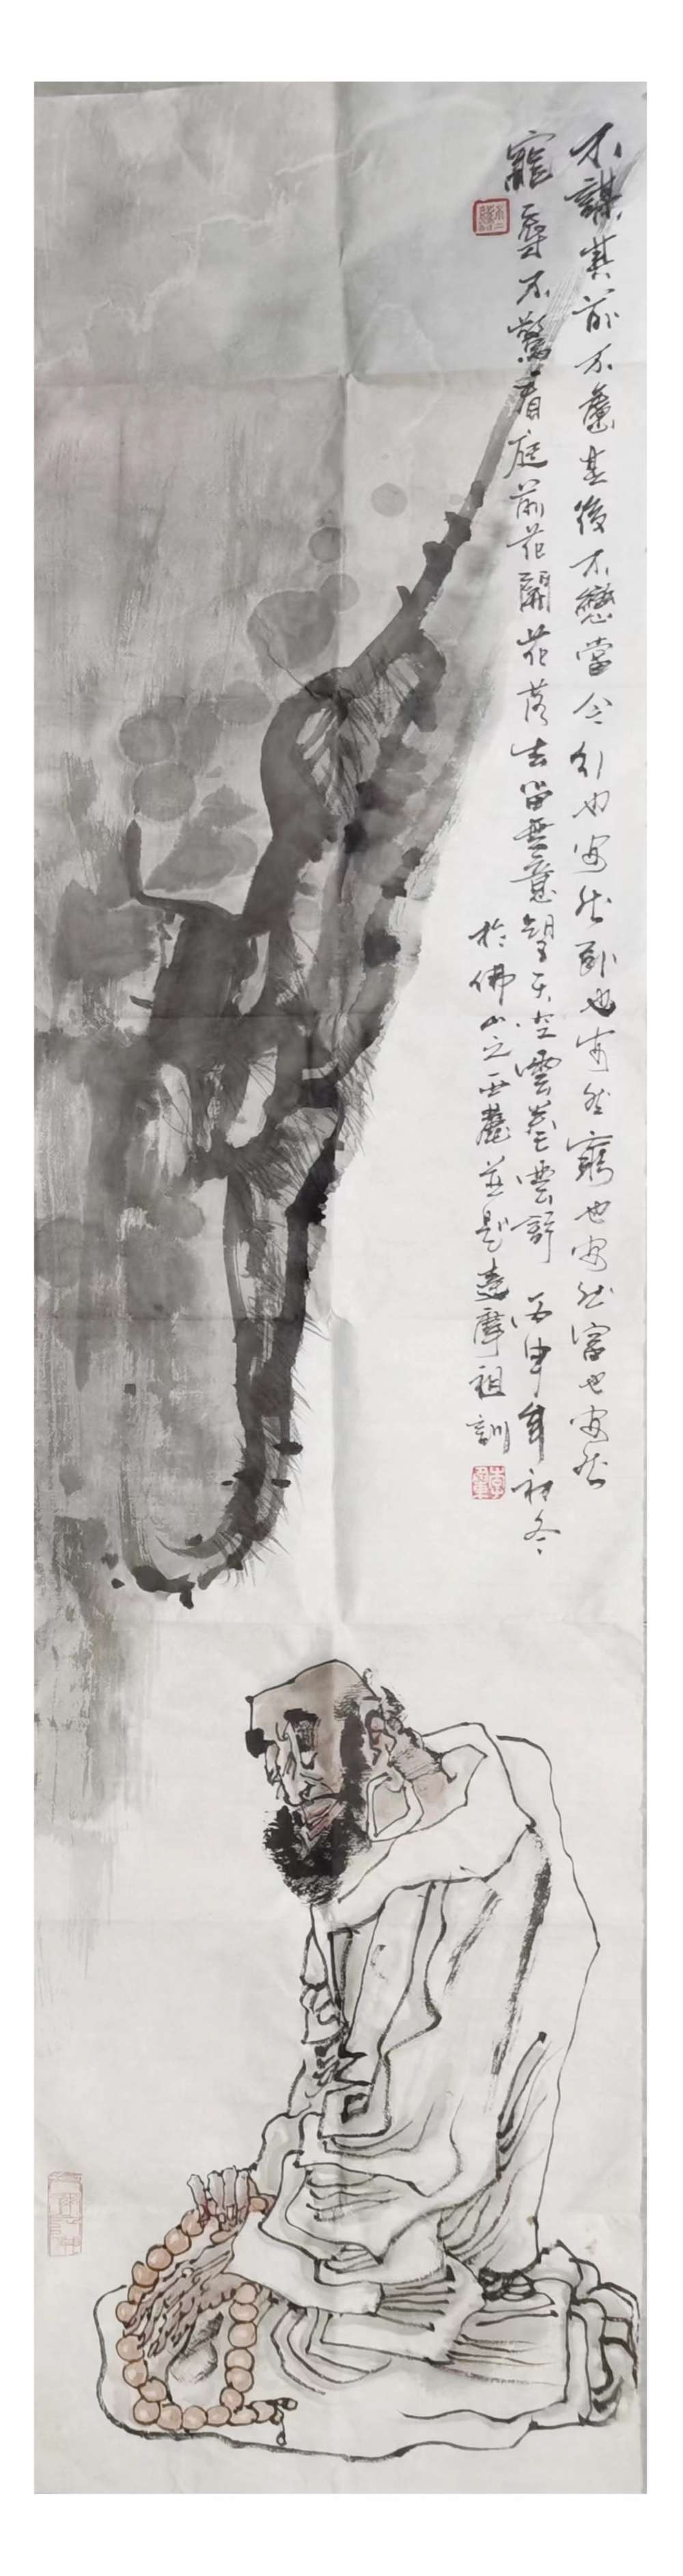 不謀其前不慮其後不戀當今行也安然臥也安然窮也安然富也安然
寵辱不驚看庭前花開花落去留無意望天空雲卷雲舒 丙申年初冬
於佛山之西麓並題達摩祖訓